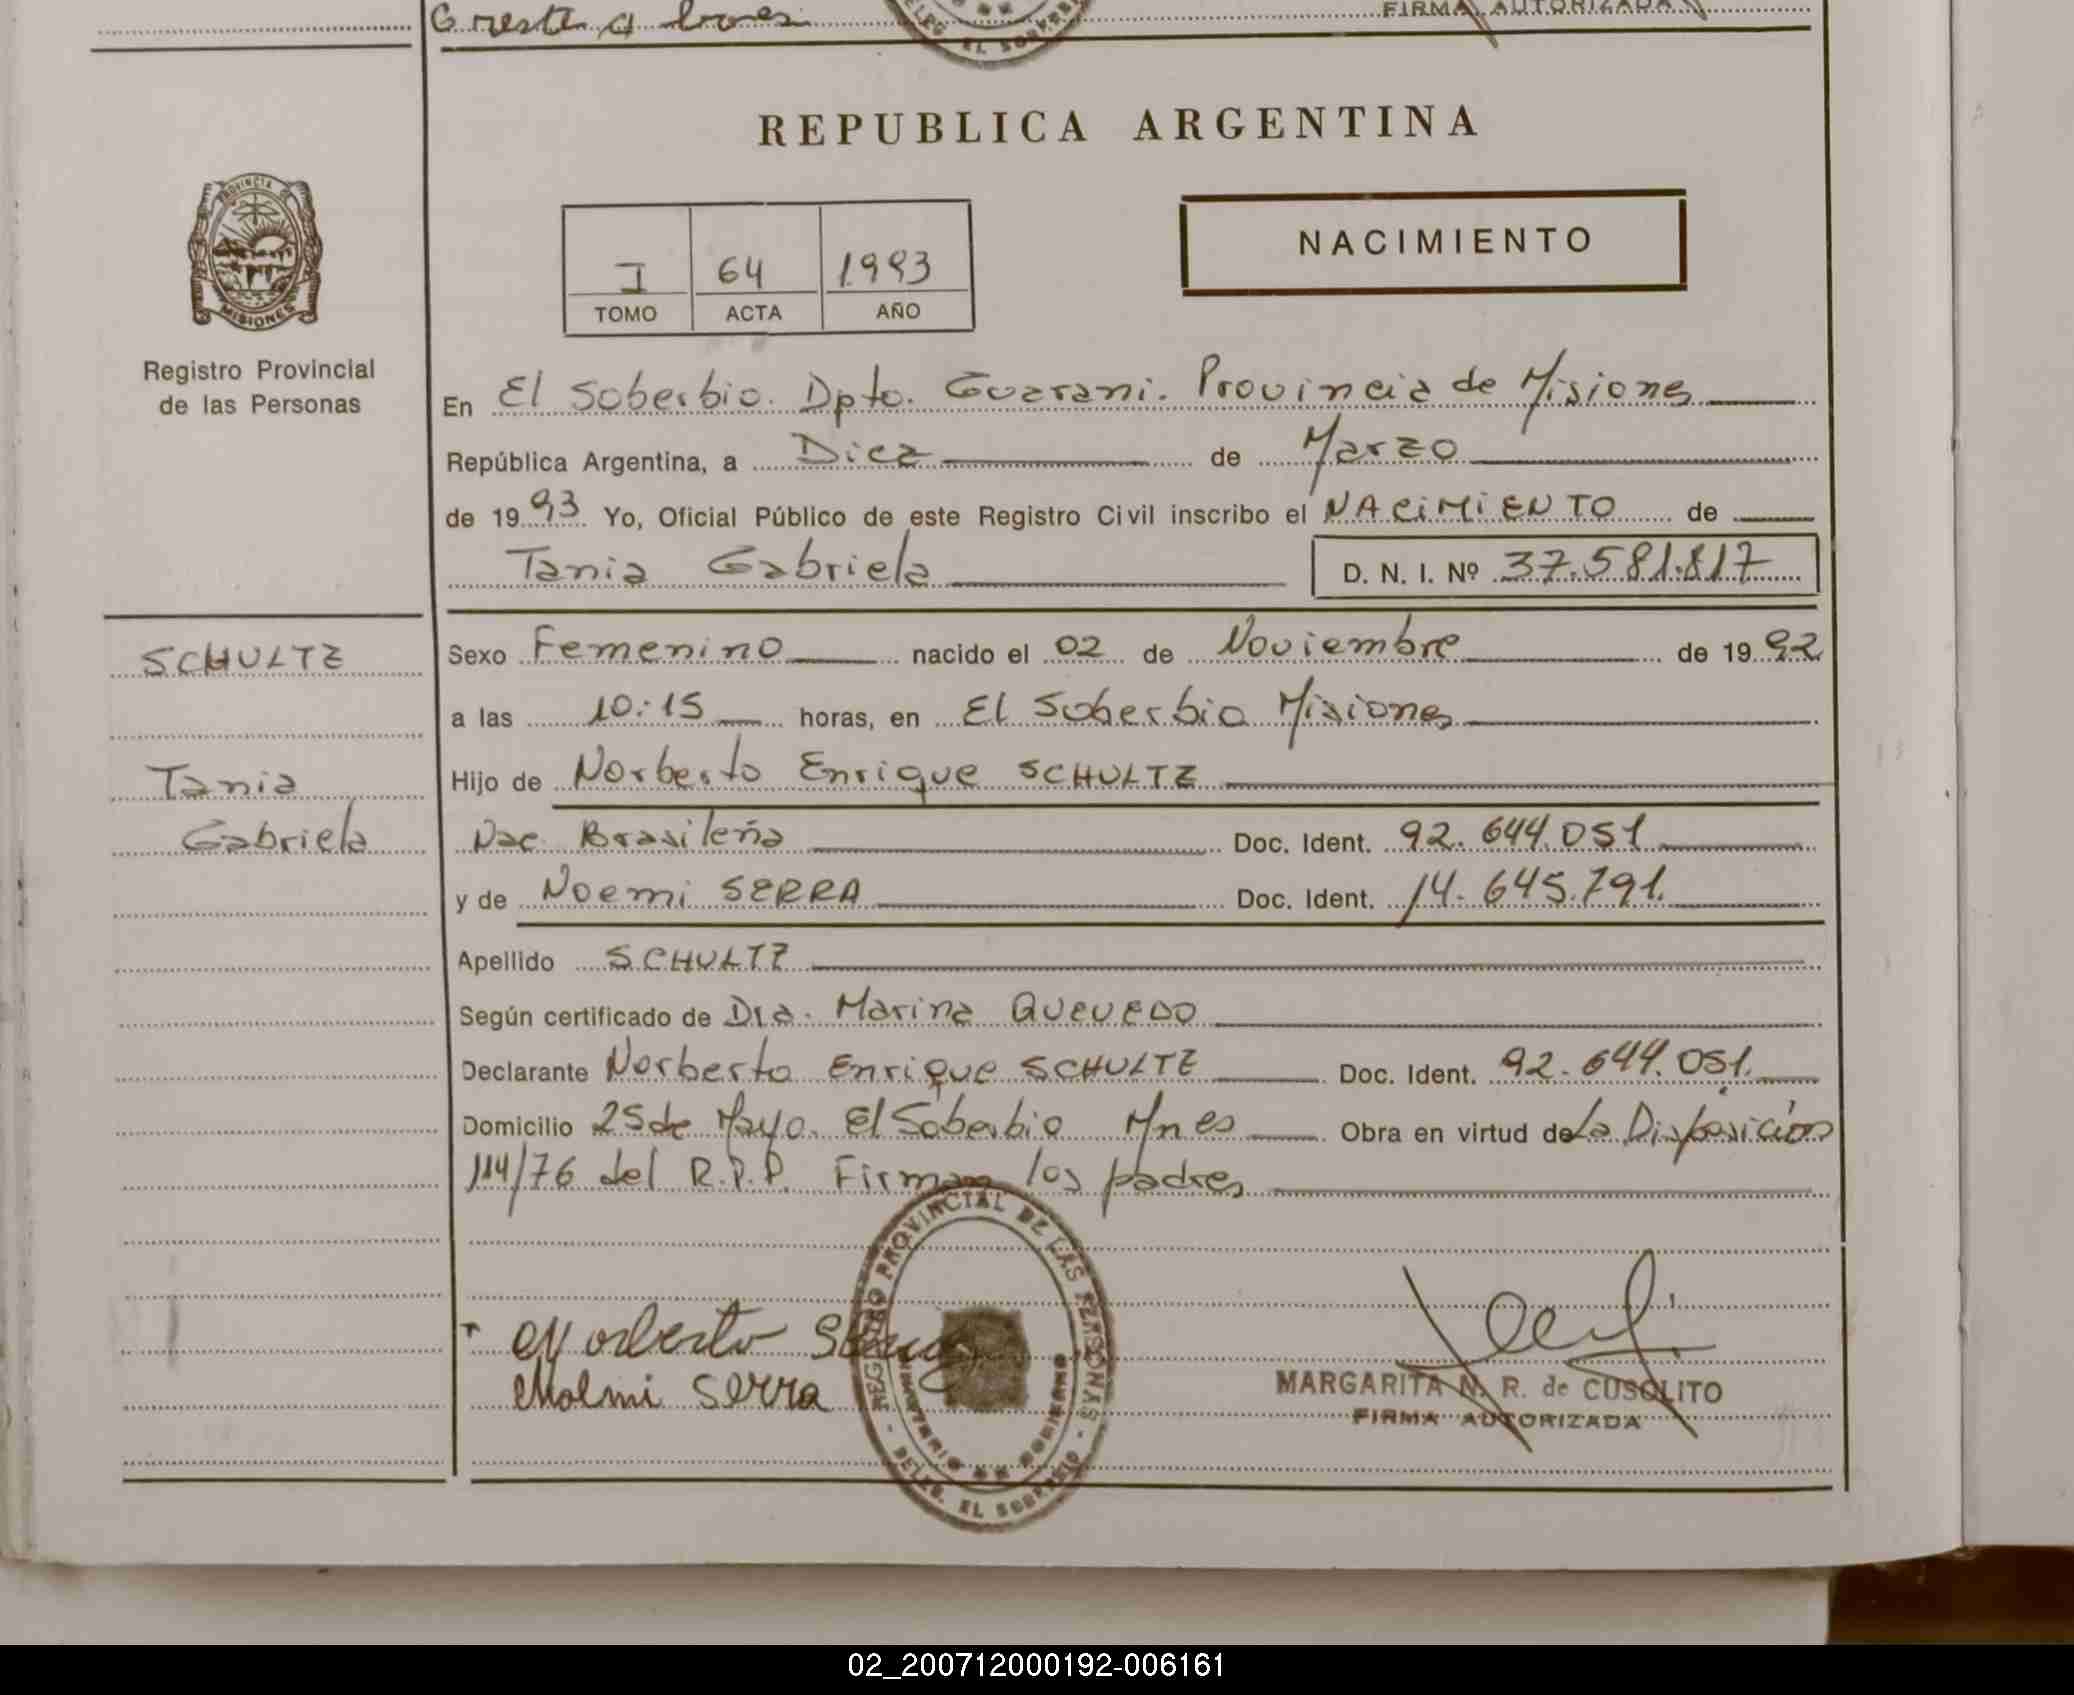 FIRMA AUTORIZADA
DELEG. EL SOBERBIO
REPUBLICA ARGENTINA
PROVINCIA
MISIONES
Registro Provincial
de las Personas
I 64 1993
TOMO ACTA AÑO
NACIMIENTO
En El Soberbio. Dpto. Guarani. Provincia de Misiones
República Argentina, a Diez de Marzo
de 1993 Yo, Oficial Público de este Registro Civil inscribo el NACIMIENTO de
Tania Gabriela D. N. I. Nº 37.581.817
SCHULTZ
Tania
Gabriela
Sexo Femenino nacido el 02 de Noviembre de 1992
a las 10:15 horas, en El Soberbio Misiones
Hijo de Norberto Enrique SCHULTZ
Nac. Brasileña Doc. Ident. 92.644.051
y de Noemi SERRA Doc. Ident. 14.645.791.
Apellido SCHULTZ
Según certificado de Dra. Marina QUEVEDO
Declarante Norberto Enrique SCHULTZ Doc. Ident. 92.644.051.
Domicilio 25 de Mayo. El Soberbio Mnes Obra en virtud de La Disposición
114/76 del R.P.P. Firman los padres
REGISTRO PROVINCIAL DE LAS PERSONAS - DELEG. EL SOBERBIO -
Norberto
Serra
MARGARITA N. R. de CUSOLITO
FIRMA AUTORIZADA
02_200712000192-006161